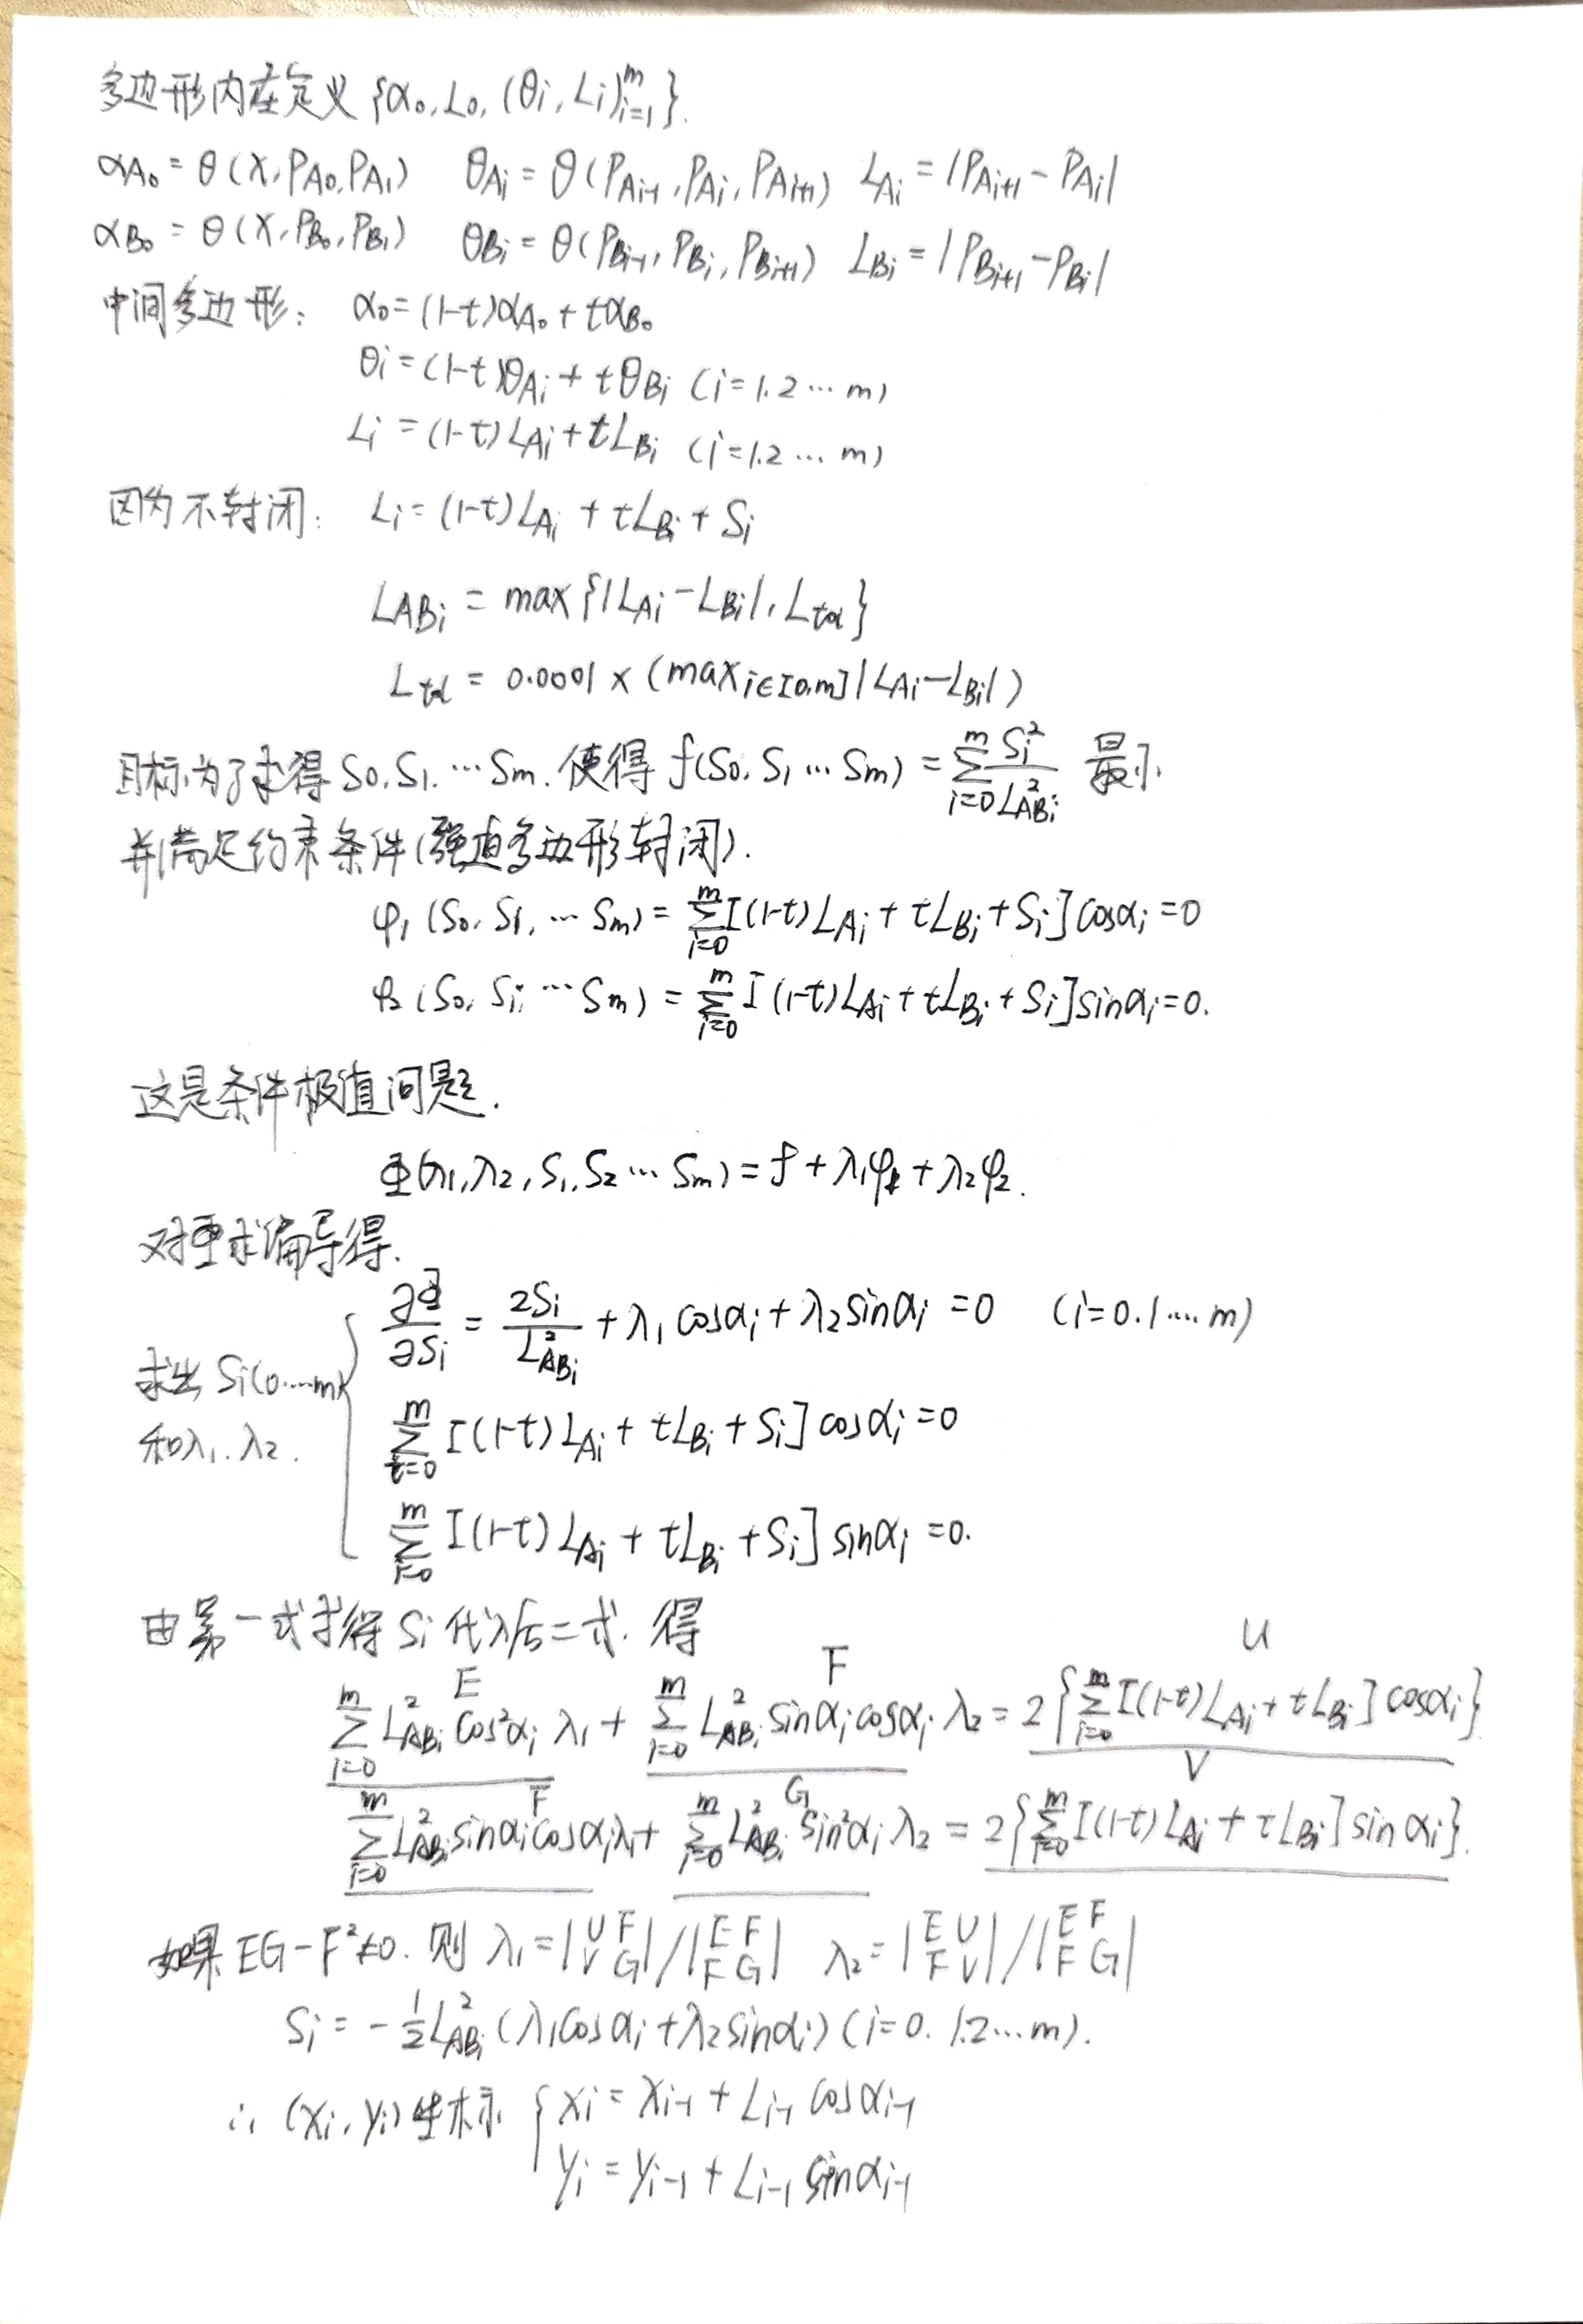 多边形内在定义 {α₀, L₀, (θi, Li)ᵐᵢ₌₁}.
αA₀ = θ(X, PA₀, PA₁) θAi = θ(PAi-1, PAi, PAi+1) LAi = |PAi+1 - PAi|
αB₀ = θ(X, PB₀, PB₁) θBi = θ(PBi-1, PBi, PBi+1) LBi = |PBi+1 - PBi|
中间多边形: α₀ = (1-t)αA₀ + tαB₀
θi = (1-t)θAi + tθBi (i=1.2…m)
Li = (1-t)LAi + tLBi (i=1.2…m)
因为不封闭: Li = (1-t)LAi + tLBi + Si
LABi = max{|LAi - LBi|, Ltol}
Ltol = 0.0001 × (max i∈[0,m] |LAi - LBi|)
目标为了求得 S₀, S₁, … Sm. 使得 f(S₀, S₁ … Sm) = Σᵐᵢ₌₀ Si²/L²ABi 最小
并满足约束条件(强迫多边形封闭).
φ₁(S₀, S₁, … Sm) = Σᵐᵢ₌₀ [(1-t)LAi + tLBi + Si] cosαi = 0
φ₂(S₀, S₁, … Sm) = Σᵐᵢ₌₀ [(1-t)LAi + tLBi + Si] sinαi = 0.
这是条件极值问题.
Φ(λ₁, λ₂, S₁, S₂ … Sm) = f + λ₁φ₁ + λ₂φ₂.
对Φ求偏导得.
∂Φ/∂Si = 2Si/L²ABi + λ₁cosαi + λ₂sinαi = 0 (i=0.1…m)
求出 Si(0…m)
和λ₁. λ₂.
Σᵐᵢ₌₀ [(1-t)LAi + tLBi + Si] cosαi = 0
Σᵐᵢ₌₀ [(1-t)LAi + tLBi + Si] sinαi = 0.
由第一式求得 Si 代入后二式. 得
E F U
Σᵐᵢ₌₀ L²ABi cos²αi λ₁ + Σᵐᵢ₌₀ L²ABi sinαi cosαi λ₂ = 2{Σᵐᵢ₌₀ [(1-t)LAi + tLBi] cosαi}
F G V
Σᵐᵢ₌₀ L²ABi sinαi cosαi λ₁ + Σᵐᵢ₌₀ L²ABi sin²αi λ₂ = 2{Σᵐᵢ₌₀ [(1-t)LAi + tLBi] sinαi}.
如果 EG - F² ≠ 0. 则 λ₁ = |U F; V G| / |E F; F G| λ₂ = |E U; F V| / |E F; F G|
Si = -½L²ABi (λ₁cosαi + λ₂sinαi) (i=0. 1.2…m).
∴ (xi, yi)坐标 { xi = xi-1 + Li-1 cosαi-1
yi = yi-1 + Li-1 sinαi-1